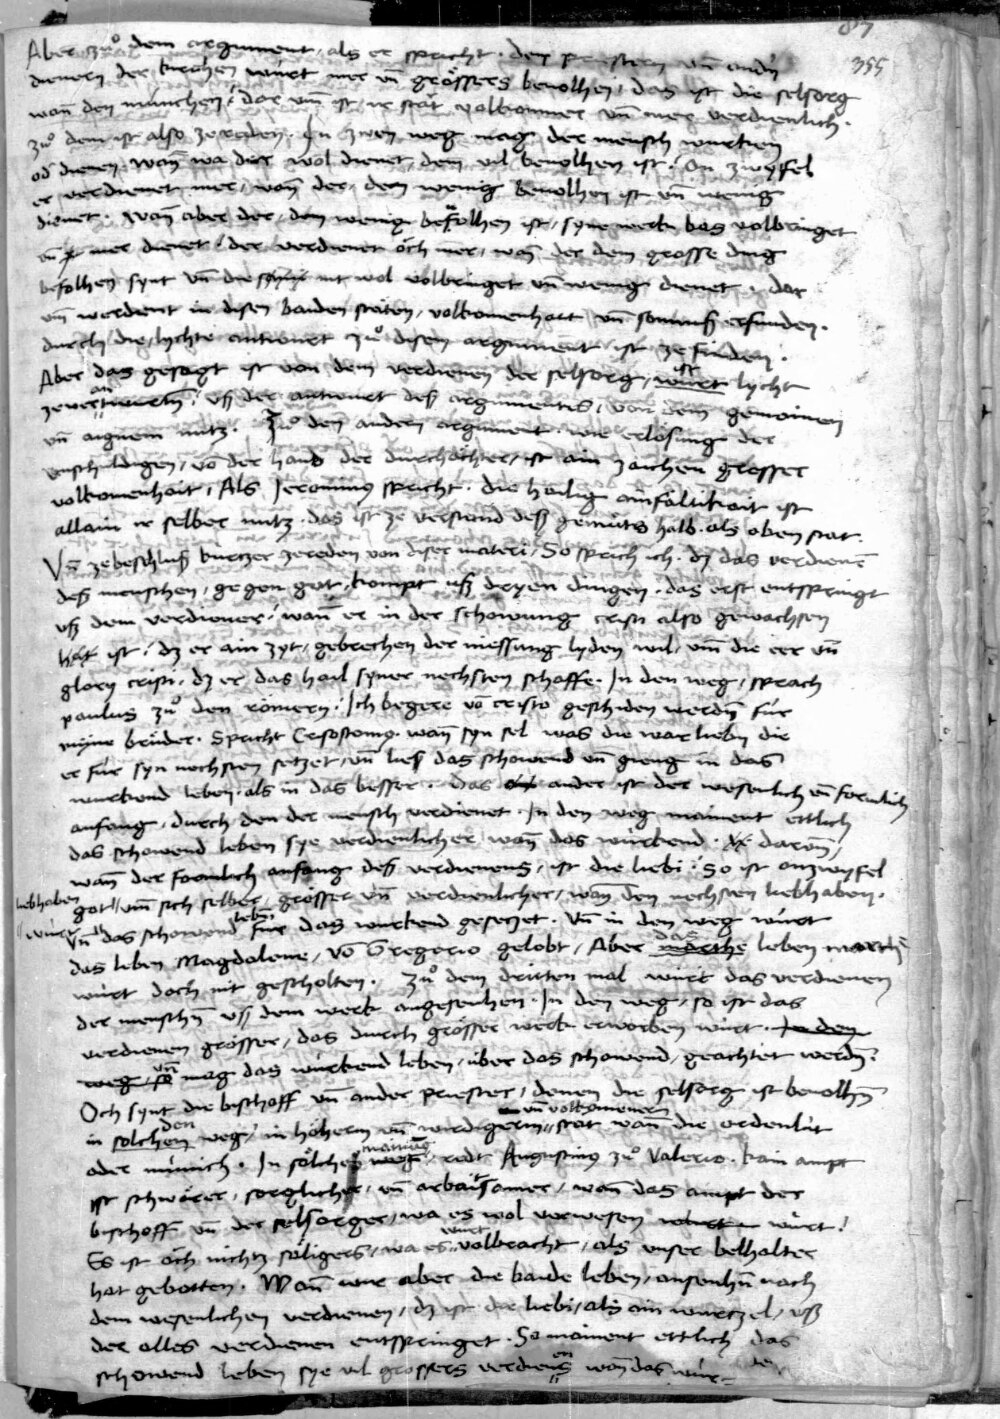 87
355
Aber zuͦ dem argument / als er spricht · den priestern vn̄ andn̄
dienern der kirchen würt mer vn̄ grössers beuolhen / das ist die selsorg
wan̄ den münchen / dar vm̄ ist ir stät volkomner vn̄ mer verdienlich ·
zuͦ dem ist also ze reden · In zwen weg mag der mensch wurken
od dienen · wan̄ wa der wol dienet / dem vil beuolhen ist / on zwyfel
er verdienet mer / wan̄ der / dem wenig beuolhen ist vn̄ wenig
dienet · Wan̄ aber der / dem wenig befolhen ist / syne werk bas volbringet
vn̄ mer dienet / der verdienet öch mer / wan̄ der dem grosse ding
befolhen synt vn̄ die nit wol volbringet vn̄ wenig dienet · dar
vm̄ werdent in disen baiden stäten / volkomenhait vn̄ erfunden ·
durch die / lychte antwurt zuͦ disem argument / ist ze finden ·
Aber das gesagt ist von dem verdienen der selsorg / würt ist lycht
ze verantwurtn̄ / vß der antwurt deß argumentes / von dem gemeinen
vn̄ aignem nutz · Zuͦ dem andern argument · wie erlösung der
vnschuldigen / vō der hand der durchächter / ist ain zaichen grosser
volkomenhait / Als Jeronimus spricht · die heilig ainfaltikait ist
allain ir selber nütz · das ist ze verstand deß gemüts halb · als oben stat ·
Vn̄ ze beschluß kurtzer ze reden von diser materi / So sprich ich · dz das verdienen̄
deß menschen / gegen got / kompt vß dryen dingen · das erst entspringt
vß dem verdiener / wan̄ er in der schowung cristi also gewachsen
hat ist / dz er ain zyt / gebrechen der niessung lyden wil / vm̄ die eer vn̄
glory cristi / dz er das hail syner nechsten schaffe · In den weg / sprach
paulus zuͦ den römern / Ich begere vō cristo geschiden werdn̄ für
myne brüder · Spricht Crisostomus · wan̄ syn sel was die war liebn̄ die
er für syn nechsten setzet / vn̄ ließ das schowend vn̄ gieng in das
wurkend leben · als in das besser · Das ander ist der wesenlich vn̄ formlich
anfang / durch den der mensch verdienet · In den weg mainent ettlich
das schowend leben sye verdienlicher wan̄ das würkend · darum̄ /
wan̄ der formlich anfang deß verdienens / ist die liebi / So ist onzwyfel
liebhaben got / vm̄ sich selber / grösser vn̄ verdienlicher / wan̄ den nechsten liebhaben ·
würt Vn̄ das schowend leben für das wurkend gesetzet · Vn̄ in den weg würt
das leben Magdalene / vō Gregorio gelobt / Aber das marthe leben marthe
würt doch nit gescholten · Zuͦ dem dritten mal würt das verdienen
der menschn̄ vß dem werk angesenhen · In den weg / so ist das
verdienen grösser / das durch grösser werk erworben würt · In den
weg / so vn̄ mag das würkend leben / über das schowend / geachtet werdn̄ ·
Och synt die bischoff vn̄ ander priester / denen die selsorg ist beuolhn̄
in solchen den weg / in höherm vn̄ wirdigerm vn̄ volkomenern stat wan̄ die ordenlüt
oder münich · In sölcher mainung weg / redt Augustinus zuͦ Valerio · kain ampt
ist schwärer / sorglicher / vn̄ arbaitsamer / wan̄ das ampt der
bischoff vn̄ der selsorger / wa es wol verwesen würt /
Es ist öch nichtz säligers / wa es würt volbracht / als vnser behalter
hat gebotten · Wan̄ wir aber die baide leben / ansenhn̄ nach
dem wesenlichen verdienen / dz ist die liebi / als ain wurtzel / vß
der alles verdienen entspringet · So mainent ettlich das
schowend leben sye vil grössers verdienens wan̄ das wür-